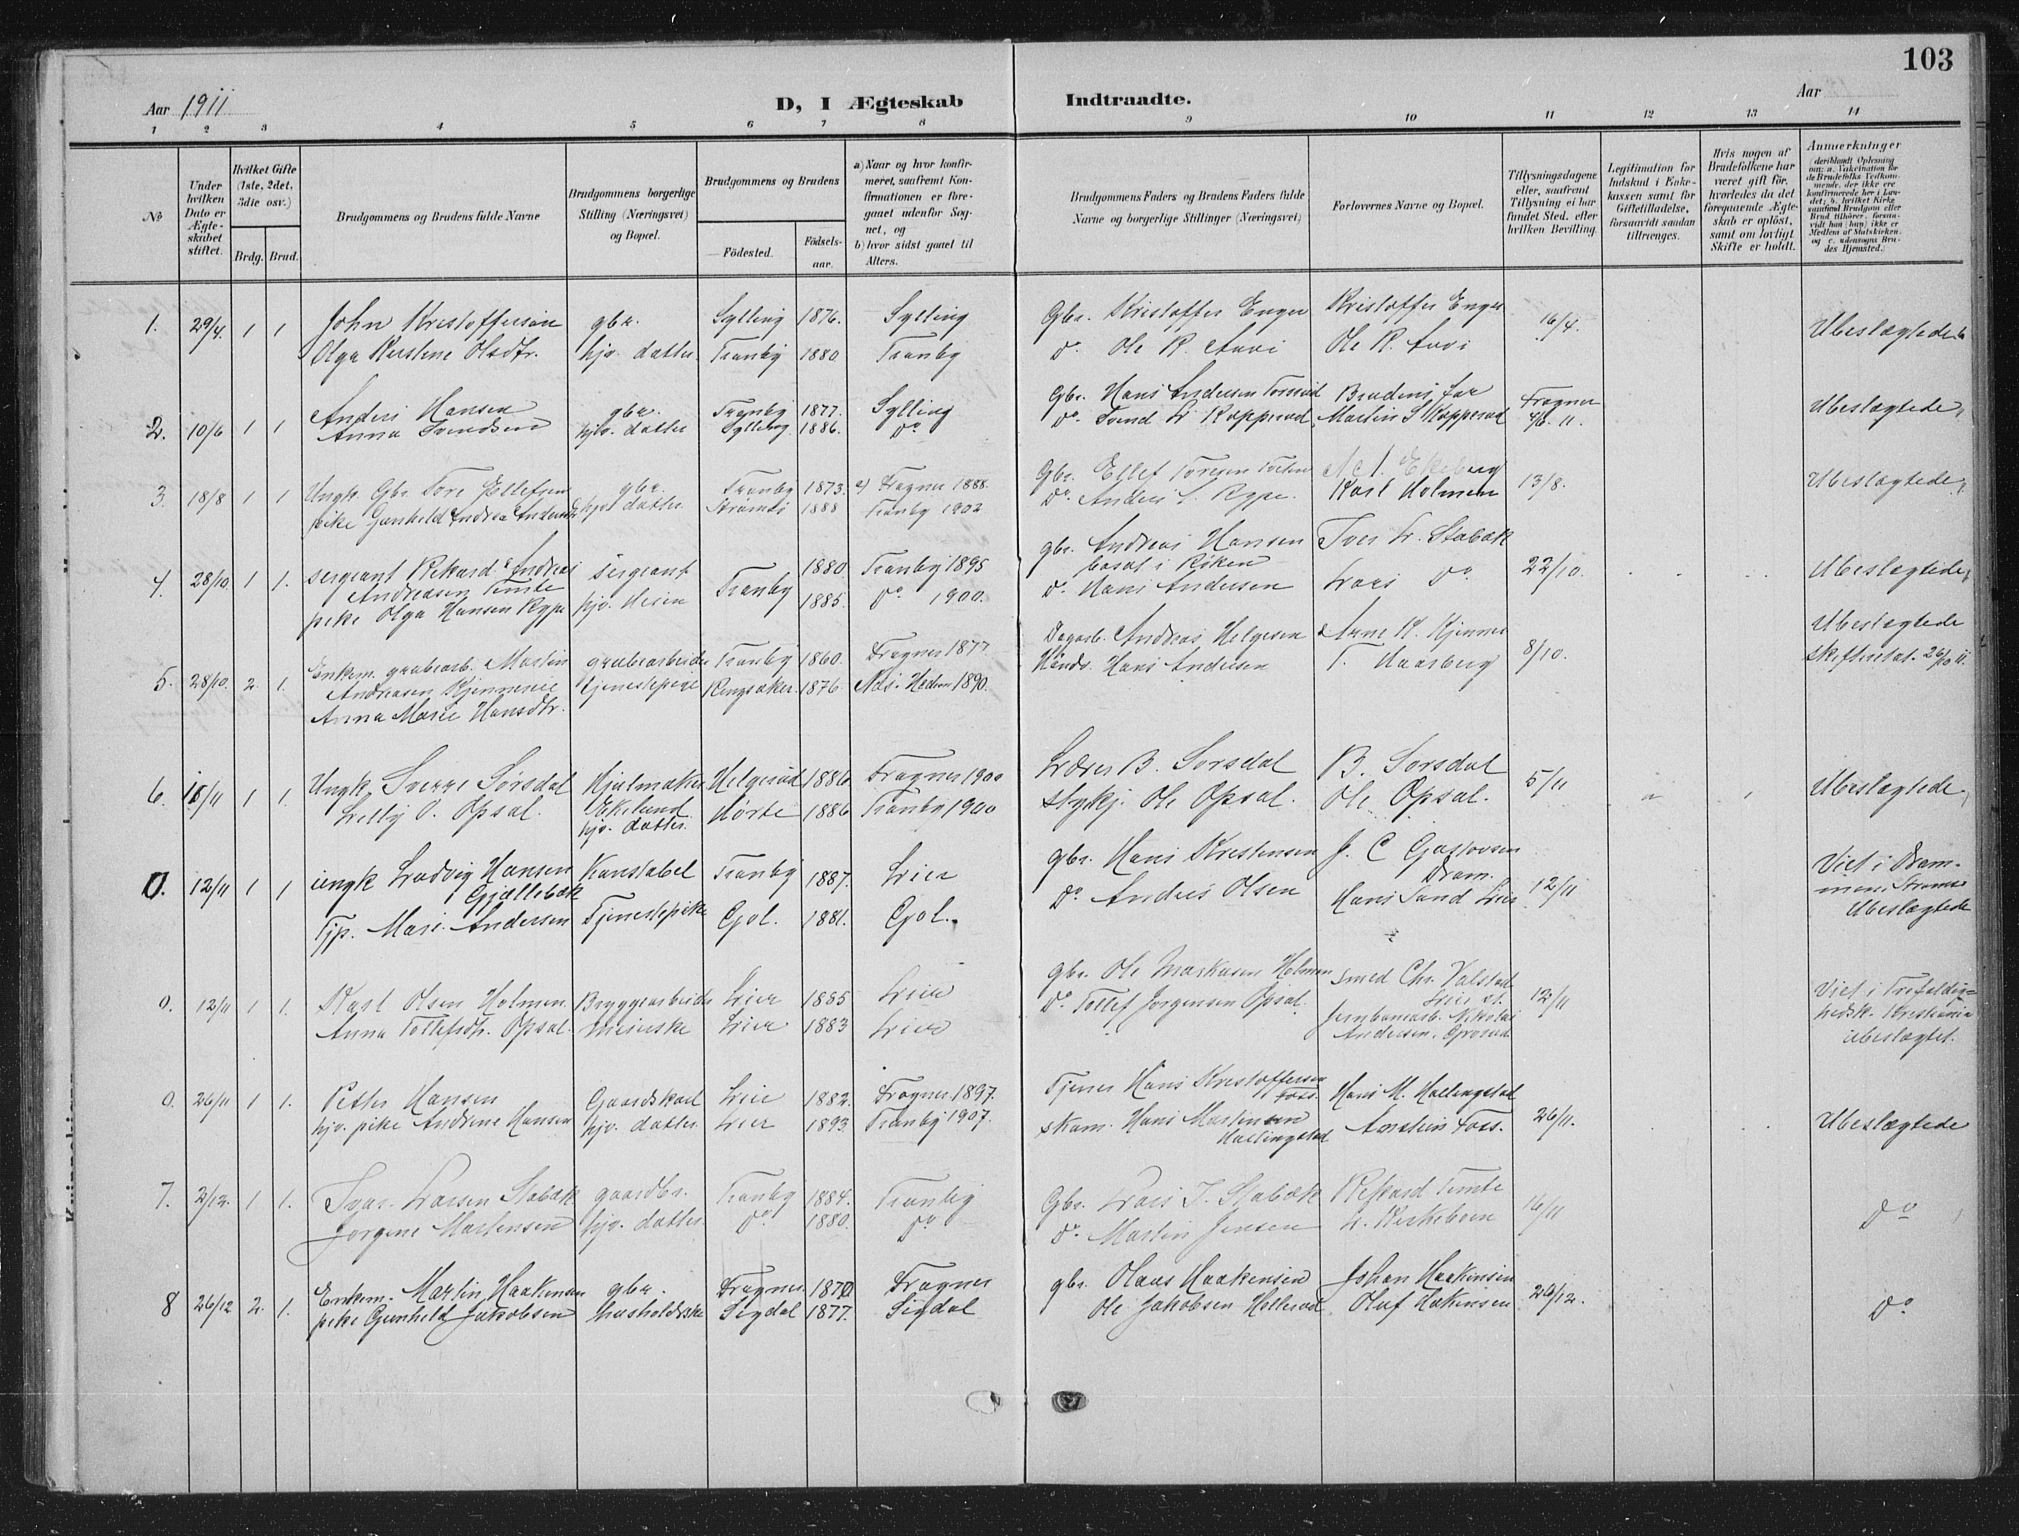 103
Aar 1911
D, I Ægteskab Indtraadte.
Aar
1 2 3 4 5 6 7 8 9 10 11 12 13 14
No
Under hvilken Dato er Ægteskabet stiftet.
Hvilket Gifte (1ste, 2det, 3die osv.)
Brdg. Brud.
Brudgommens og Brudens fulde Navne
Brudgommens borgerlige Stilling (Næringsvei) og Bopæl.
Brudgommens og Brudens
Fødested.
Fødselsaar.
a) Naar og hvor konfirmeret, saafremt Konfirmationen er foregaaet udenfor Sognet, og
b) hvor sidst gaaet til Alters.
Brudgommens Faders og Brudens Faders fulde Navne og borgerlige Stillinger (Næringsvei)
Forlovernes Navne og Bopæl.
Tillysningsdagene eller, saafremt Tillysning ei har fundet Sted, efter hvilken Bevilling.
Legitimation for Indskud i Enkekassen samt for Giftetilladelse, forsaavidt saadan tiltrænges.
Hvis nogen af Brudefolkene har været gift før, hvorledes da det foregaaende Ægteskab er opløst, samt om lovligt Skifte er holdt.
Anmerkninger
1. 29/4 1 1 John Kristoffersen gbr. Sylling 1876. Sylling Gbr. Kristoffer Enger Kristoffer Enger 16/4. Ubeslægtede
Olga Kirstine Olsdtr. hjv. datter Tranby 1880. Tranby Do Ole R. Ole R.
2. 10/6 1 1 Anders Hansen gbr. Tranby 1877. Sylling Gbr. Hans Andersen Brudens far Fragner Ubeslægtede
Anna Svendsen hjv. datter Sylling 1886. Do Do Svend Martin S. 4/6. 11.
3. 18/8 1 1 Ungk. Gbr. Tore Ellefsen gbr. Tranby 1873. a) Fragner 1888. Gbr. Ellef 13/8. Ubeslægtede
pike Gunhild Andrea hjv. datter Strømsø 1888 Tranby 1902 Do Anders Rype. Karl Holmen
4. 28/10 1 1. sergeant Rikard Andreas sergeant 1880 Tranby 1895 gbr. Andreas Hansen Iver L. Stabæk 22/10. Ubeslægtede
Andreasen Timte Tranby bosat i Røken
pike Olga Hansen Rype hjv. 1885. Do 1900. Do Hans Andersen Lars Do
5. 28/10. 2. 1. Enkem. grubearb. Martin grubearbeider Tranby 1860. Fragner 1877 Dagarb. Andreas Helgesen Arne K. 8/10. Ubeslægtede
Andreasen tjenestepige Ringsaker 1876. Nes. Hedem 1890. Haandv. Hans Andersen T. Haarberg skifteatst. 26/10 11.
Anna Marie Hansdtr.
6. 18/11 1 1. Ungk. Sverre Sørsdal Hjulmaker 1886 Fragner 1900 Lærer B. Sørsdal B. Sørsdal 5/11 Ubeslægtede
Lelly O. Opsal. hjv. datter. Hørte 1886 Tranby 1900 Ole Opsal. Ole Opsal.
0. 12/11 1 1 ungk Ludvig Hansen Konstabel Tranby 1887. Lier gbr. Hans Kristensen J. C Gastovsen Dram. 12/11 Viet i Drammen,
Gjellebæk
Tjp. Mari Andersen Tjenestepike Gol. 1881. Gol. Do Andres Olsen Hans Sand Lier Ubeslægtede
0. 12/11 1 1. Karl Olsen Holmen Bryggearbeider Lier 1885 Lier gbr. Ole Markusen Holmen smed Chr. Valstad Lier st. 12/11 Viet i Trefoldighedsk. Kristiania
Anna Tollefsdtr. Opsal. Lier 1883 Lier Do Tollef Jørgensen Opsal. Jernbanearb. Nikolai Andersen. Grorud ubeslægtet.
0. 26/11 1 1. Petter Hansen Gaardskarl Lier 1882. Fragner 1897. Tjener Hans Kristoffersen Foss. Hans M. Hallingstad 26/11. Ubeslægtede
hjv. pike Andrine Hansen hjv. datter Lier 1893. Tranby 1907. skom. Hans Martinsen Hallingstad Anstein Foss.
7. 2/12. 1 1. Ivar Larsen Stabæk gaardbr. Tranby 1884. Tranby Gbr. Lars I. Stabæk Rikard Timte 16/11 Do
Jørgine Martinsen hjv. datter. Do 1880. Do Do Martin Jensen L. Kirkebøen
8 26/12 2. 1. Enkem. Martin Haakensen gbr. Fragner 1870 Fragner gbr. Olaus Haakensen Johan Haakensen 26/12. Do
pike Gunhild Jakobsen husholderske Sigdal 1877. Sigdal Ole Jakobsen Hellerud Oluf Hakensen